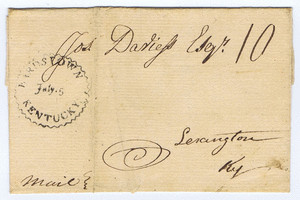 Jos Daviess Esqr. 10
BARDSTOWN
July. 5
KENTUCKY
Lexington
Ky
Mail